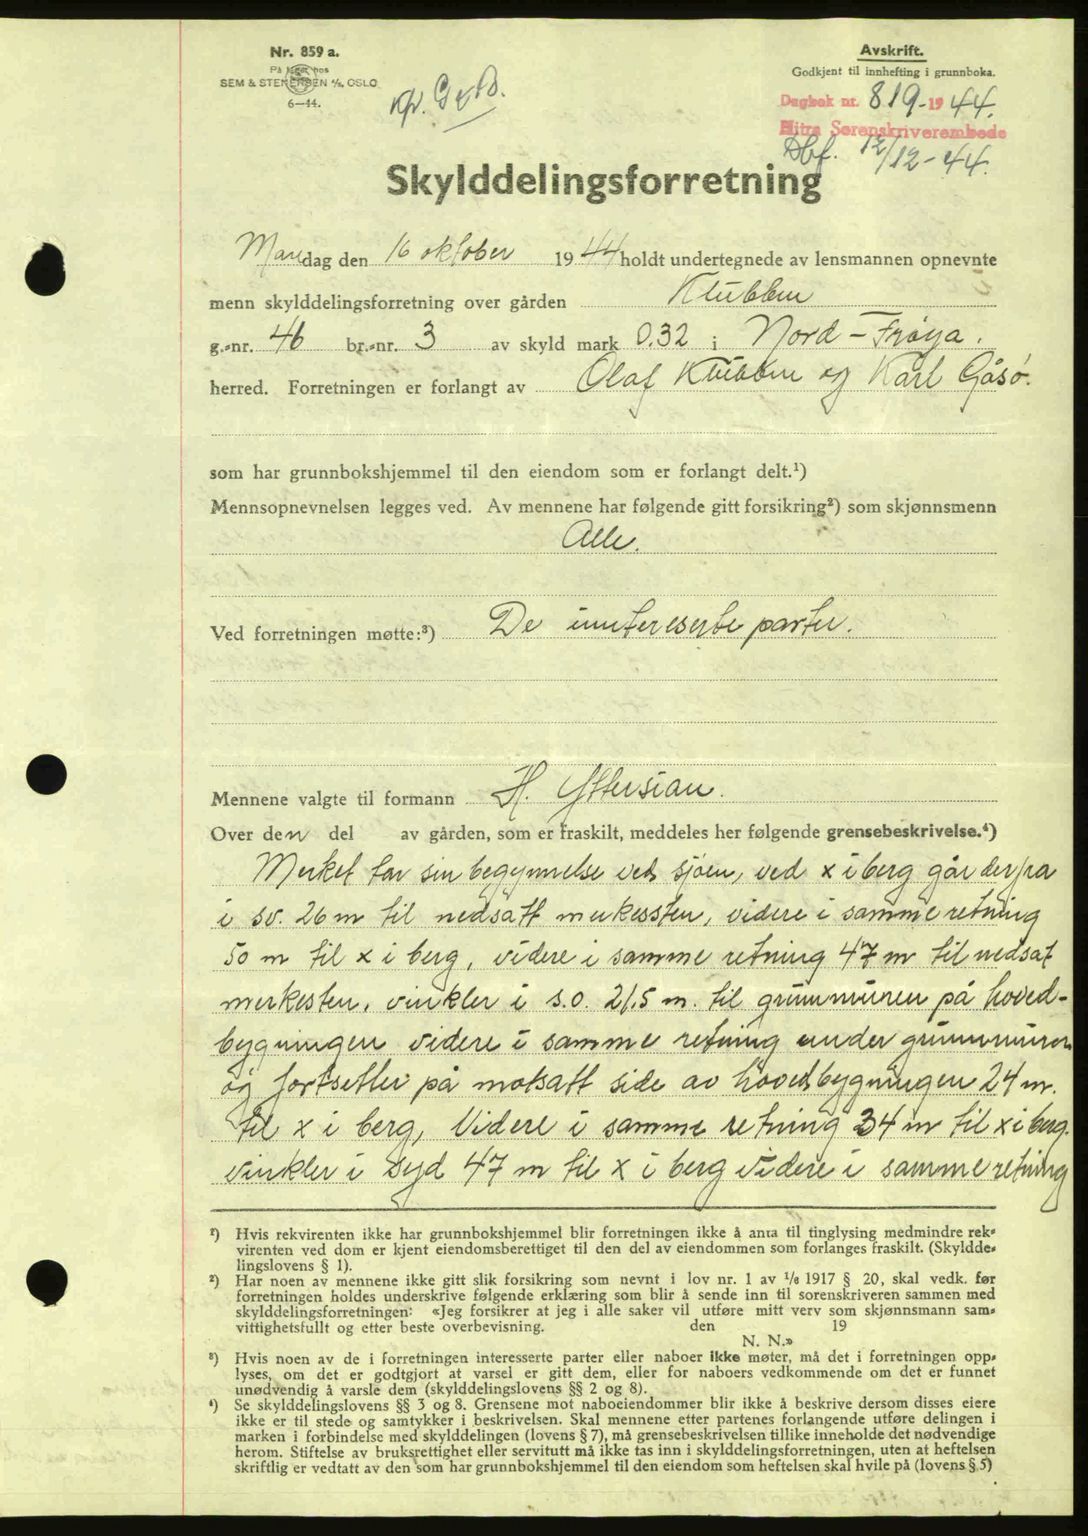 Nr. 859 a.
På lager hos
SEM & STENERSEN A/S, OSLO
6—44.
Avskrift.
Godkjent til innhefting i grunnboka.
Dagbok nr. 819-1944.
Hitra Sorenskriverembede
Dbf. 12/12-44.
Skylddelingsforretning
Mandag den 16 oktober 1944 holdt undertegnede av lensmannen opnevnte
menn skylddelingsforretning over gården Klubben
g.-nr. 46 br.-nr. 3 av skyld mark 0.32 i Nord-Frøya.
herred. Forretningen er forlangt av Olaf Klubben og Karl Gåsø.
som har grunnbokshjemmel til den eiendom som er forlangt delt.¹)
Mennsopnevnelsen legges ved. Av mennene har følgende gitt forsikring²) som skjønnsmenn
Alle.
Ved forretningen møtte:³) De inntereserte parter.
Mennene valgte til formann H. Yttersian.
Over den del av gården, som er fraskilt, meddeles her følgende grensebeskrivelse.⁴)
Merket tar sin begynnelse ved sjøen, ved x i berg går derfra
i sv. 26 m til nedsatt merkessten, videre i samme retning
50 m til x i berg, videre i samme retning 47 m til nedsat
merkesten, vinkler i s.o. 21.5 m. til grunnmuren på hoved-
bygningen videre i samme retning under grunnmuren
og fortsetter på motsatt side av hovedbygningen 24 m.
til x i berg, Videre i samme retning 34 m til x i berg.
vinkler i syd 47 m til x i berg videre i samme retning
¹) Hvis rekvirenten ikke har grunnbokshjemmel blir forretningen ikke å anta til tinglysing medmindre rek-
virenten ved dom er kjent eiendomsberettiget til den del av eiendommen som forlanges fraskilt. (Skyldde-
lingslovens § 1).
²) Har noen av mennene ikke gitt slik forsikring som nevnt i lov nr. 1 av 1/6 1917 § 20, skal vedk. før
forretningen holdes underskrive følgende erklæring som blir å sende inn til sorenskriveren sammen med
skylddelingsforretningen: «Jeg forsikrer at jeg i alle saker vil utføre mitt verv som skjønnsmann sam-
vittighetsfullt og etter beste overbevisning. den 19
N. N.»
³) Hvis noen av de i forretningen interesserte parter eller naboer ikke møter, må det i forretningen opp-
lyses, om det er godtgjort at varsel er gitt dem, eller for naboers vedkommende om det er funnet
unødvendig å varsle dem (skylddelingslovens §§ 2 og 8).
⁴) Se skylddelingslovens §§ 3 og 8. Grensene mot naboeiendommer blir ikke å beskrive dersom disses eiere
ikke er til stede og samtykker i beskrivelsen. Skal mennene etter partenes forlangende utføre delingen i
marken i forbindelse med skylddelingen (lovens § 7), må grensebeskrivelsen tillike inneholde det nødvendige
herom. Stiftelse av bruksrettighet eller servitutt må ikke tas inn i skylddelingsforretningen, uten at heftelsen
skriftlig er vedtatt av den som har grunnbokshjemmel til den eiendom som heftelsen skal hvile på (lovens § 5)